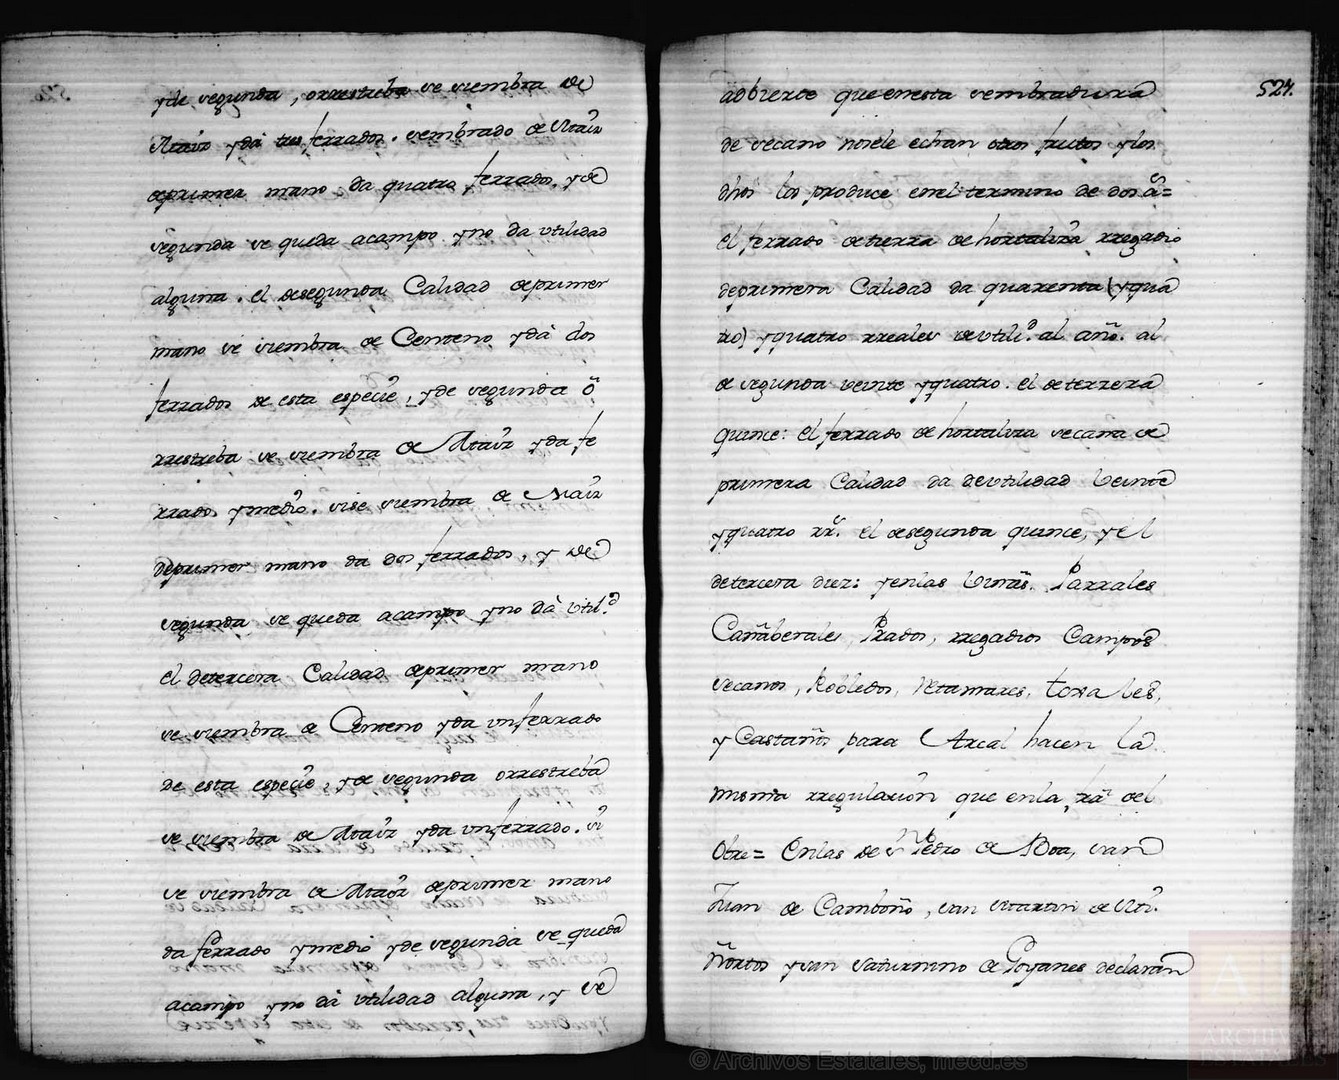 y de segunda, orrestreba se siembra de
Maiz y dá tres ferrados. sembrado de Maiz
de primera mano da quatro ferrados, y de
segunda se queda acampo y no da utilidad
alguna. el de segunda Calidad de primer
mano se siembra de Centeno y dá dos
ferrados de esta especie, y de segunda ó
rrestreba se siembra de Maiz y da fe
rrados y medio. si se siembra de Maiz
de primer mano da dos ferrados, y de
segunda se queda acampo y no dá util.d
el de tercera Calidad de primer mano
se siembra de Centeno y da un ferrado
de esta especie, y de segunda orrestreba
se siembra de Maiz y da un ferrado. si
se siembra de Maiz de primer mano
da ferrado y medio y de segunda se queda
acampo y no dá utilidad alguna, y se
524.
adbierte que en esta sembradura
de secano no se le echan otros frutos y los
dhos los produce en el termino de dos a.s=
el ferrado de tierra de hortaliza rregadio
de primera Calidad da quarenta (y qua
tro) y quatro rreales de utili.d al año. al
de segunda veinte y quatro. el de terzera
quince: el ferrado de hortaliza secana de
primera Calidad da de utilidad veinte
y quatro rr.s el de segunda quince, y el
de tercera diez: y en las Viñas, Parrales
Cañaberales, Prados, rregadios Campos
secanos, Robledos, Retamares, toxales,
y Castaños para Arcal hacen la
misma rregulazion que en la rr.a del
Obre= En las de S.n Pedro de Boa, san
Juan de Camboño, san Martin de
Nortos y san Saturnino de Goyanes declaran
© Archivos Estatales, mecd.es
ARCHIVOS
ESTATALES